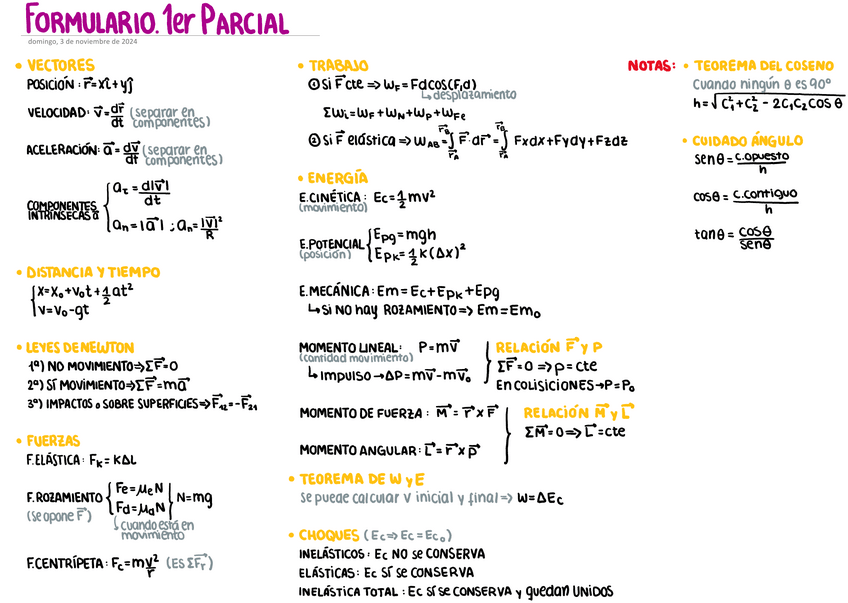 FORMULARIO. 1er PARCIAL
domingo, 3 de noviembre de 2024
• VECTORES
POSICIÓN: r⃗=xî+yĵ
VELOCIDAD: v⃗=dr⃗/dt (separar en componentes)
ACELERACIÓN: a⃗=dv⃗/dt (separar en componentes)
COMPONENTES INTRÍNSECAS a⃗
aτ = d|v⃗|/dt
an=|a⃗| ; an=|v⃗|²/R
• DISTANCIA Y TIEMPO
x=x₀+v₀t+½at²
v=v₀-gt
• LEYES DE NEWTON
1ª) NO MOVIMIENTO⇒ΣF⃗=0
2ª) SÍ MOVIMIENTO⇒ΣF⃗=ma⃗
3ª) IMPACTOS o SOBRE SUPERFICIES⇒F⃗₁₂=-F⃗₂₁
• FUERZAS
F.ELÁSTICA: Fκ=KΔL
F.ROZAMIENTO (se opone F⃗)
Fe=μeN
Fd=μdN
N=mg
↳cuando está en movimiento
F.CENTRÍPETA: Fc=mv²/r (ES ΣF⃗r)
• TRABAJO
① Si F⃗ cte ⇒ WF=Fdcos(F,d)
↳desplazamiento
ΣWi=WF+WN+WP+WFe
② Si F⃗ elástica ⇒ WAB=∫F⃗·dr⃗=∫Fxdx+Fydy+Fzdz
• ENERGÍA
E.CINÉTICA: Ec=½mv²
(movimiento)
E.POTENCIAL (posición)
Epg=mgh
Epk=½K(Δx)²
E.MECÁNICA: Em=Ec+Epk+Epg
↳Si NO hay ROZAMIENTO⇒ Em=Em₀
MOMENTO LINEAL: P=mv⃗
(cantidad movimiento)
↳IMPULSO→ΔP=mv⃗-mv⃗₀
RELACIÓN F⃗ y P
ΣF⃗=0⇒p=cte
EN COLISICIONES→P=P₀
MOMENTO DE FUERZA: M⃗=r⃗xF⃗
MOMENTO ANGULAR: L⃗=r⃗xp⃗
RELACIÓN M⃗ y L⃗
ΣM⃗=0⇒L⃗=cte
• TEOREMA DE W y E
se puede calcular v inicial y final⇒ W=ΔEc
• CHOQUES (Ec⇒Ec=Ec₀)
INELÁSTICOS: Ec NO se CONSERVA
ELÁSTICAS: Ec SÍ se CONSERVA
INELÁSTICA TOTAL: Ec SÍ se CONSERVA y quedan UNIDOS
NOTAS: • TEOREMA DEL COSENO
Cuando ningún θ es 90°
h=√C₁²+C₂²-2C₁C₂COSθ
• CUIDADO ÁNGULO
senθ=c.opuesto/h
cosθ=c.contiguo/h
tanθ=cosθ/senθ